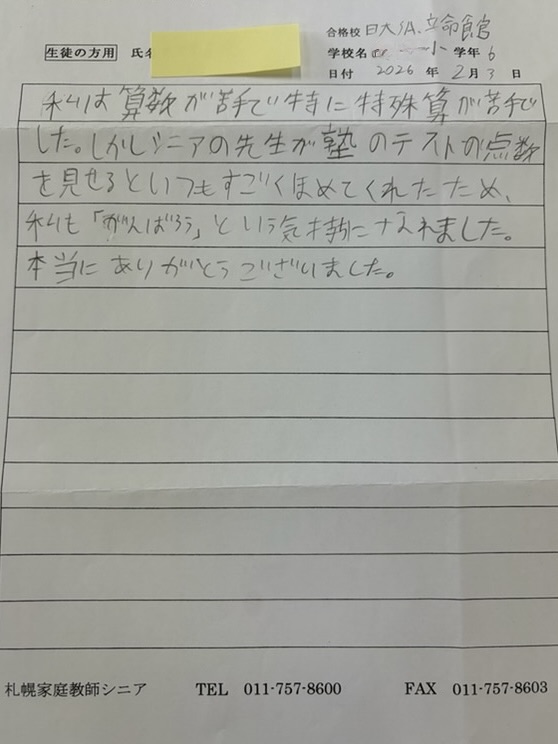 合格校 日大SA、立命館
生徒の方用 氏名
学校名 小 学年 6
日付 2026 年 2 月 3 日
私は算数が苦手で特に特殊算が苦手で
した。しかしシニアの先生が塾のテストの点数
を見せるといつもすごくほめてくれたため、
私も「がんばろう」という気持になれました。
本当にありがとうございました。
札幌家庭教師シニア TEL 011-757-8600 FAX 011-757-8603